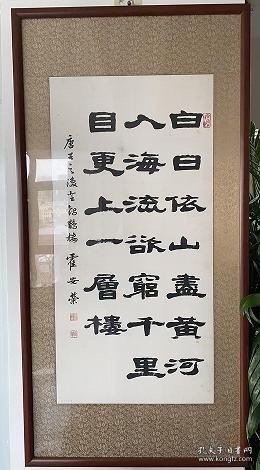 白日依山盡黃河
入海流欲窮千里
目更上一層樓
唐王之渙登鸛鵲樓 霍安榮
孔夫子旧书网
www.kongfz.com